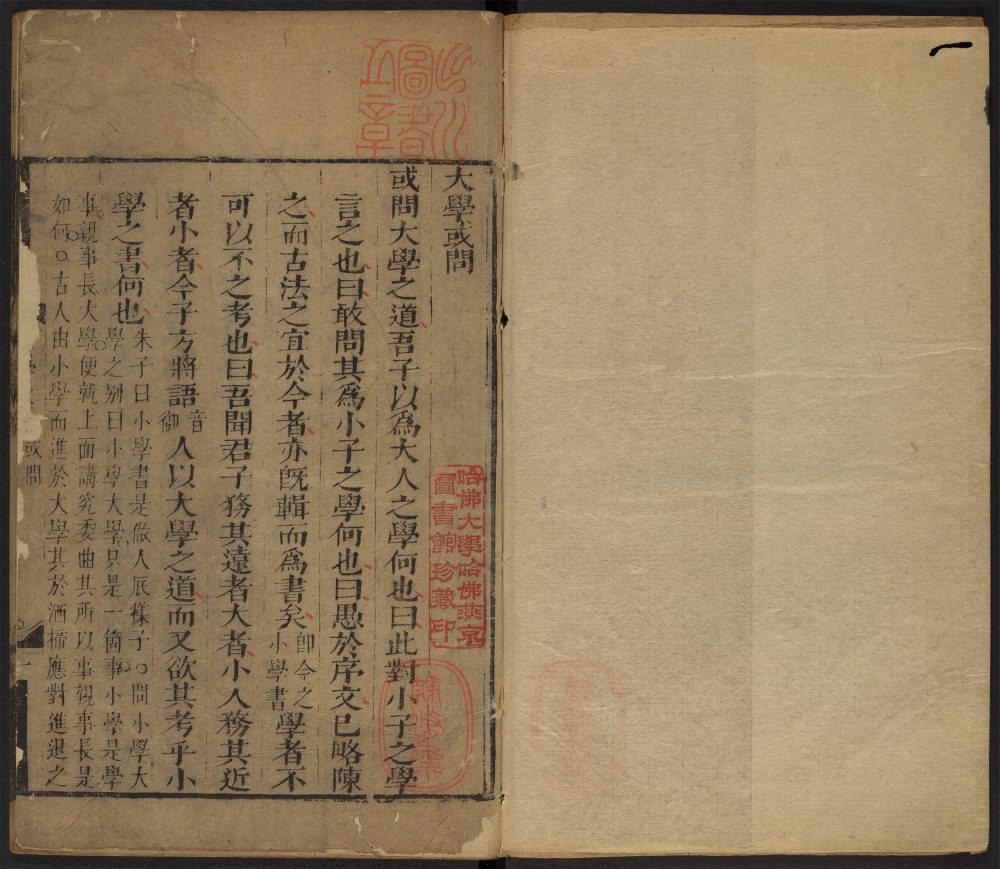 大學或問
或問大學之道吾子以爲大人之學何也曰此對小子之學
言之也曰敢問其爲小子之學何也曰愚於序文已略陳
之而古法之宜於今者亦旣輯而爲書矣
卽今之
小學書
學者不
可以不之考也曰吾聞君子務其遠者大者小人務其近
者小者今子方將語
音
御
人以大學之道而又欲其考乎小
學之書何也
朱子曰小學書是做人底樣子○問小學大
學之别曰小學大學只是一箇事小學是學
事親事長大學便就上面講究委曲其所以事親事長是
如何○古人由小學而進於大學其於洒掃應對進退之
或問
一
圖書
章
哈佛大學哈佛燕京
圖書館珍藏印